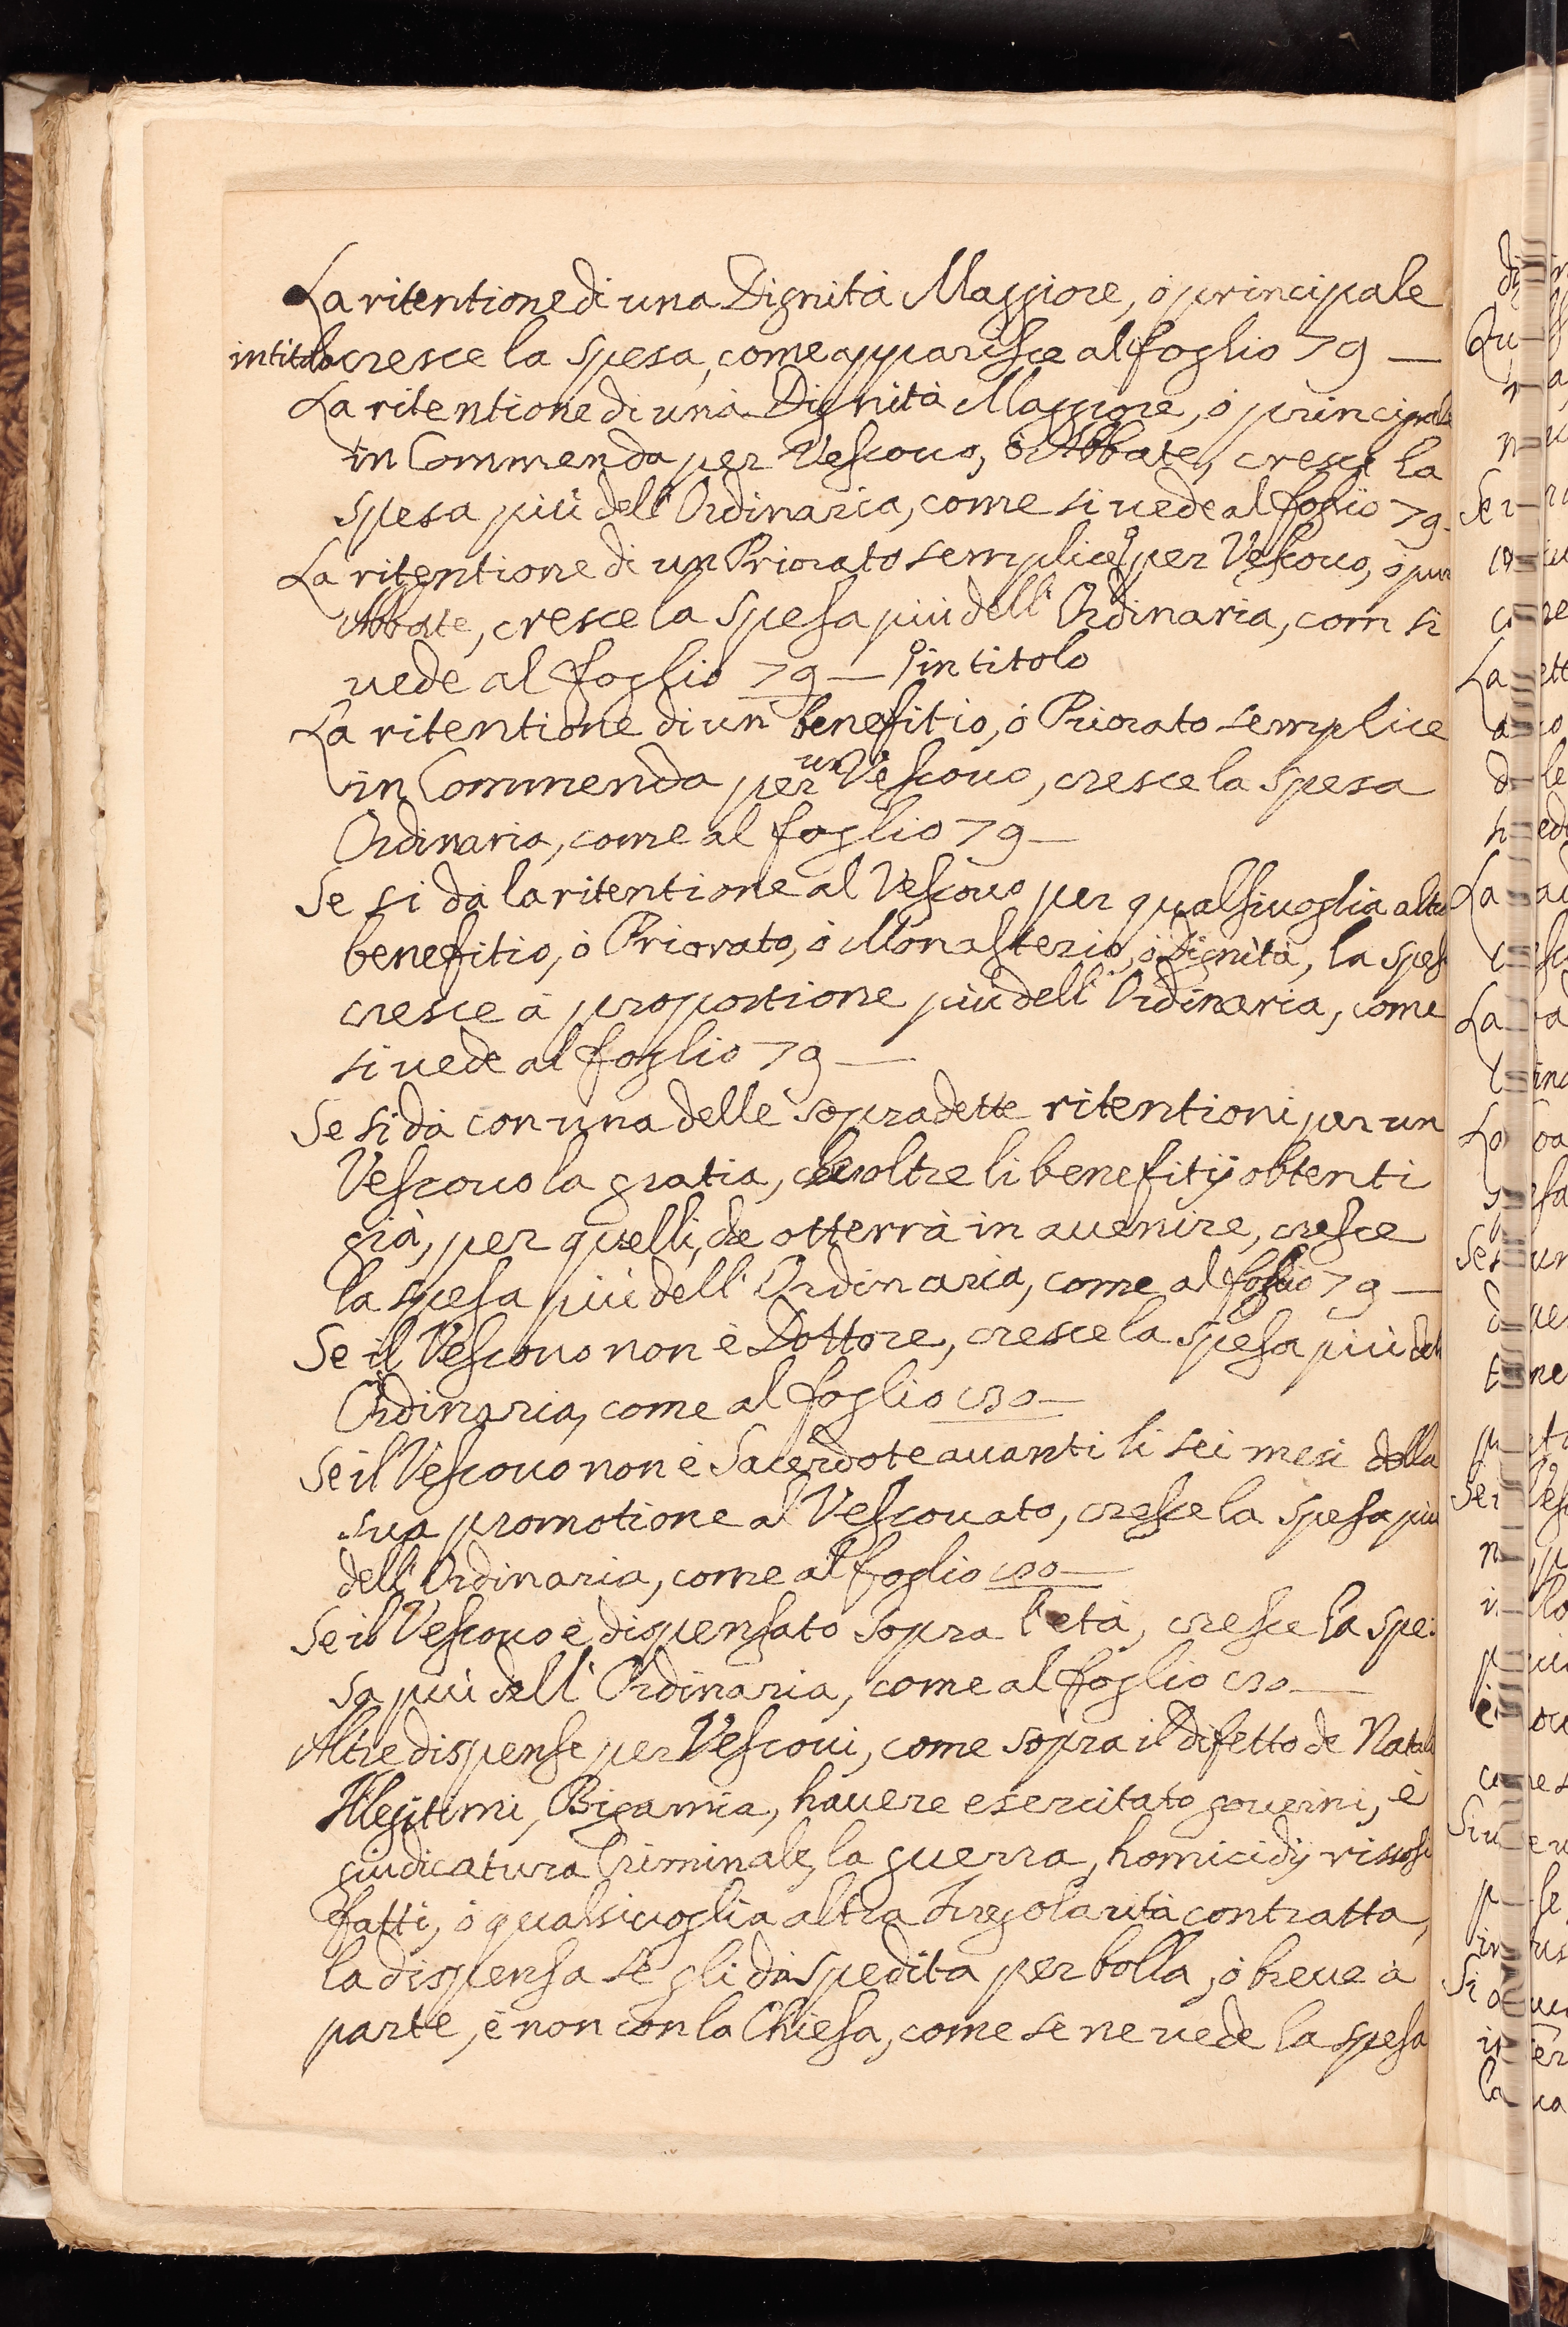 La ritentione di una Dignità Maggiore, ò principale
intitolo cresce la spesa, come apparisce al foglio 79 —
La ritentione di una Dignità Maggiore, ò principale
in Commenda per Vescouo, ò Abbate, cresce la
spesa più dell' Ordinaria, come si uede al foglio 79-
La ritentione di un Priorato semplice per Vescouo, ò pur
Abbate, cresce la spesa più dell' Ordinaria, com si
uede al foglio 79 — in titolo
La ritentione di un benefitio, ò Priorato semplice
in Commenda per un Vescouo, cresce la spesa
Ordinaria, come al foglio 79 —
Se si dà la ritentione al Vescouo per qualsiuoglia altro
benefitio, ò Priorato, ò Monasterio, ò Dignità, la spesa
cresce à proportione più dell' Ordinaria, come
si uede al foglio 79 —
Se si dà con una delle sopradette ritentioni per un
Vescouo la gratia, che oltre li benefitij obtenti
già, per quelli, che otterrà in auenire, cresce
la spesa più dell' Ordinaria, come al foglio 79 —
Se il Vescouo non è Dottore, cresce la spesa più del
Ordinaria, come al foglio
Se il Vescouo non è Sacerdote auanti li sei mesi della
sua promotione al Vescouato, cresce la spesa più
dell' Ordinaria, come al foglio
Se il Vescouo è dispensato sopra l'età, cresce la spe:
sa più dell' Ordinaria, come al foglio
Altre dispense per Vescoui, come sopra il difetto de Natali
Illegitimi, Bigamia, hauere esercitato gouerni, è
giudicatura Criminale, la guerra, homicidij rissosi
fatti, ò qualsiuoglia altra Iregolarità contratta,
la dispensa se gli dà spedita per bolla, ò breue à
parte, è non con la Chiesa, come se ne uede la spesa